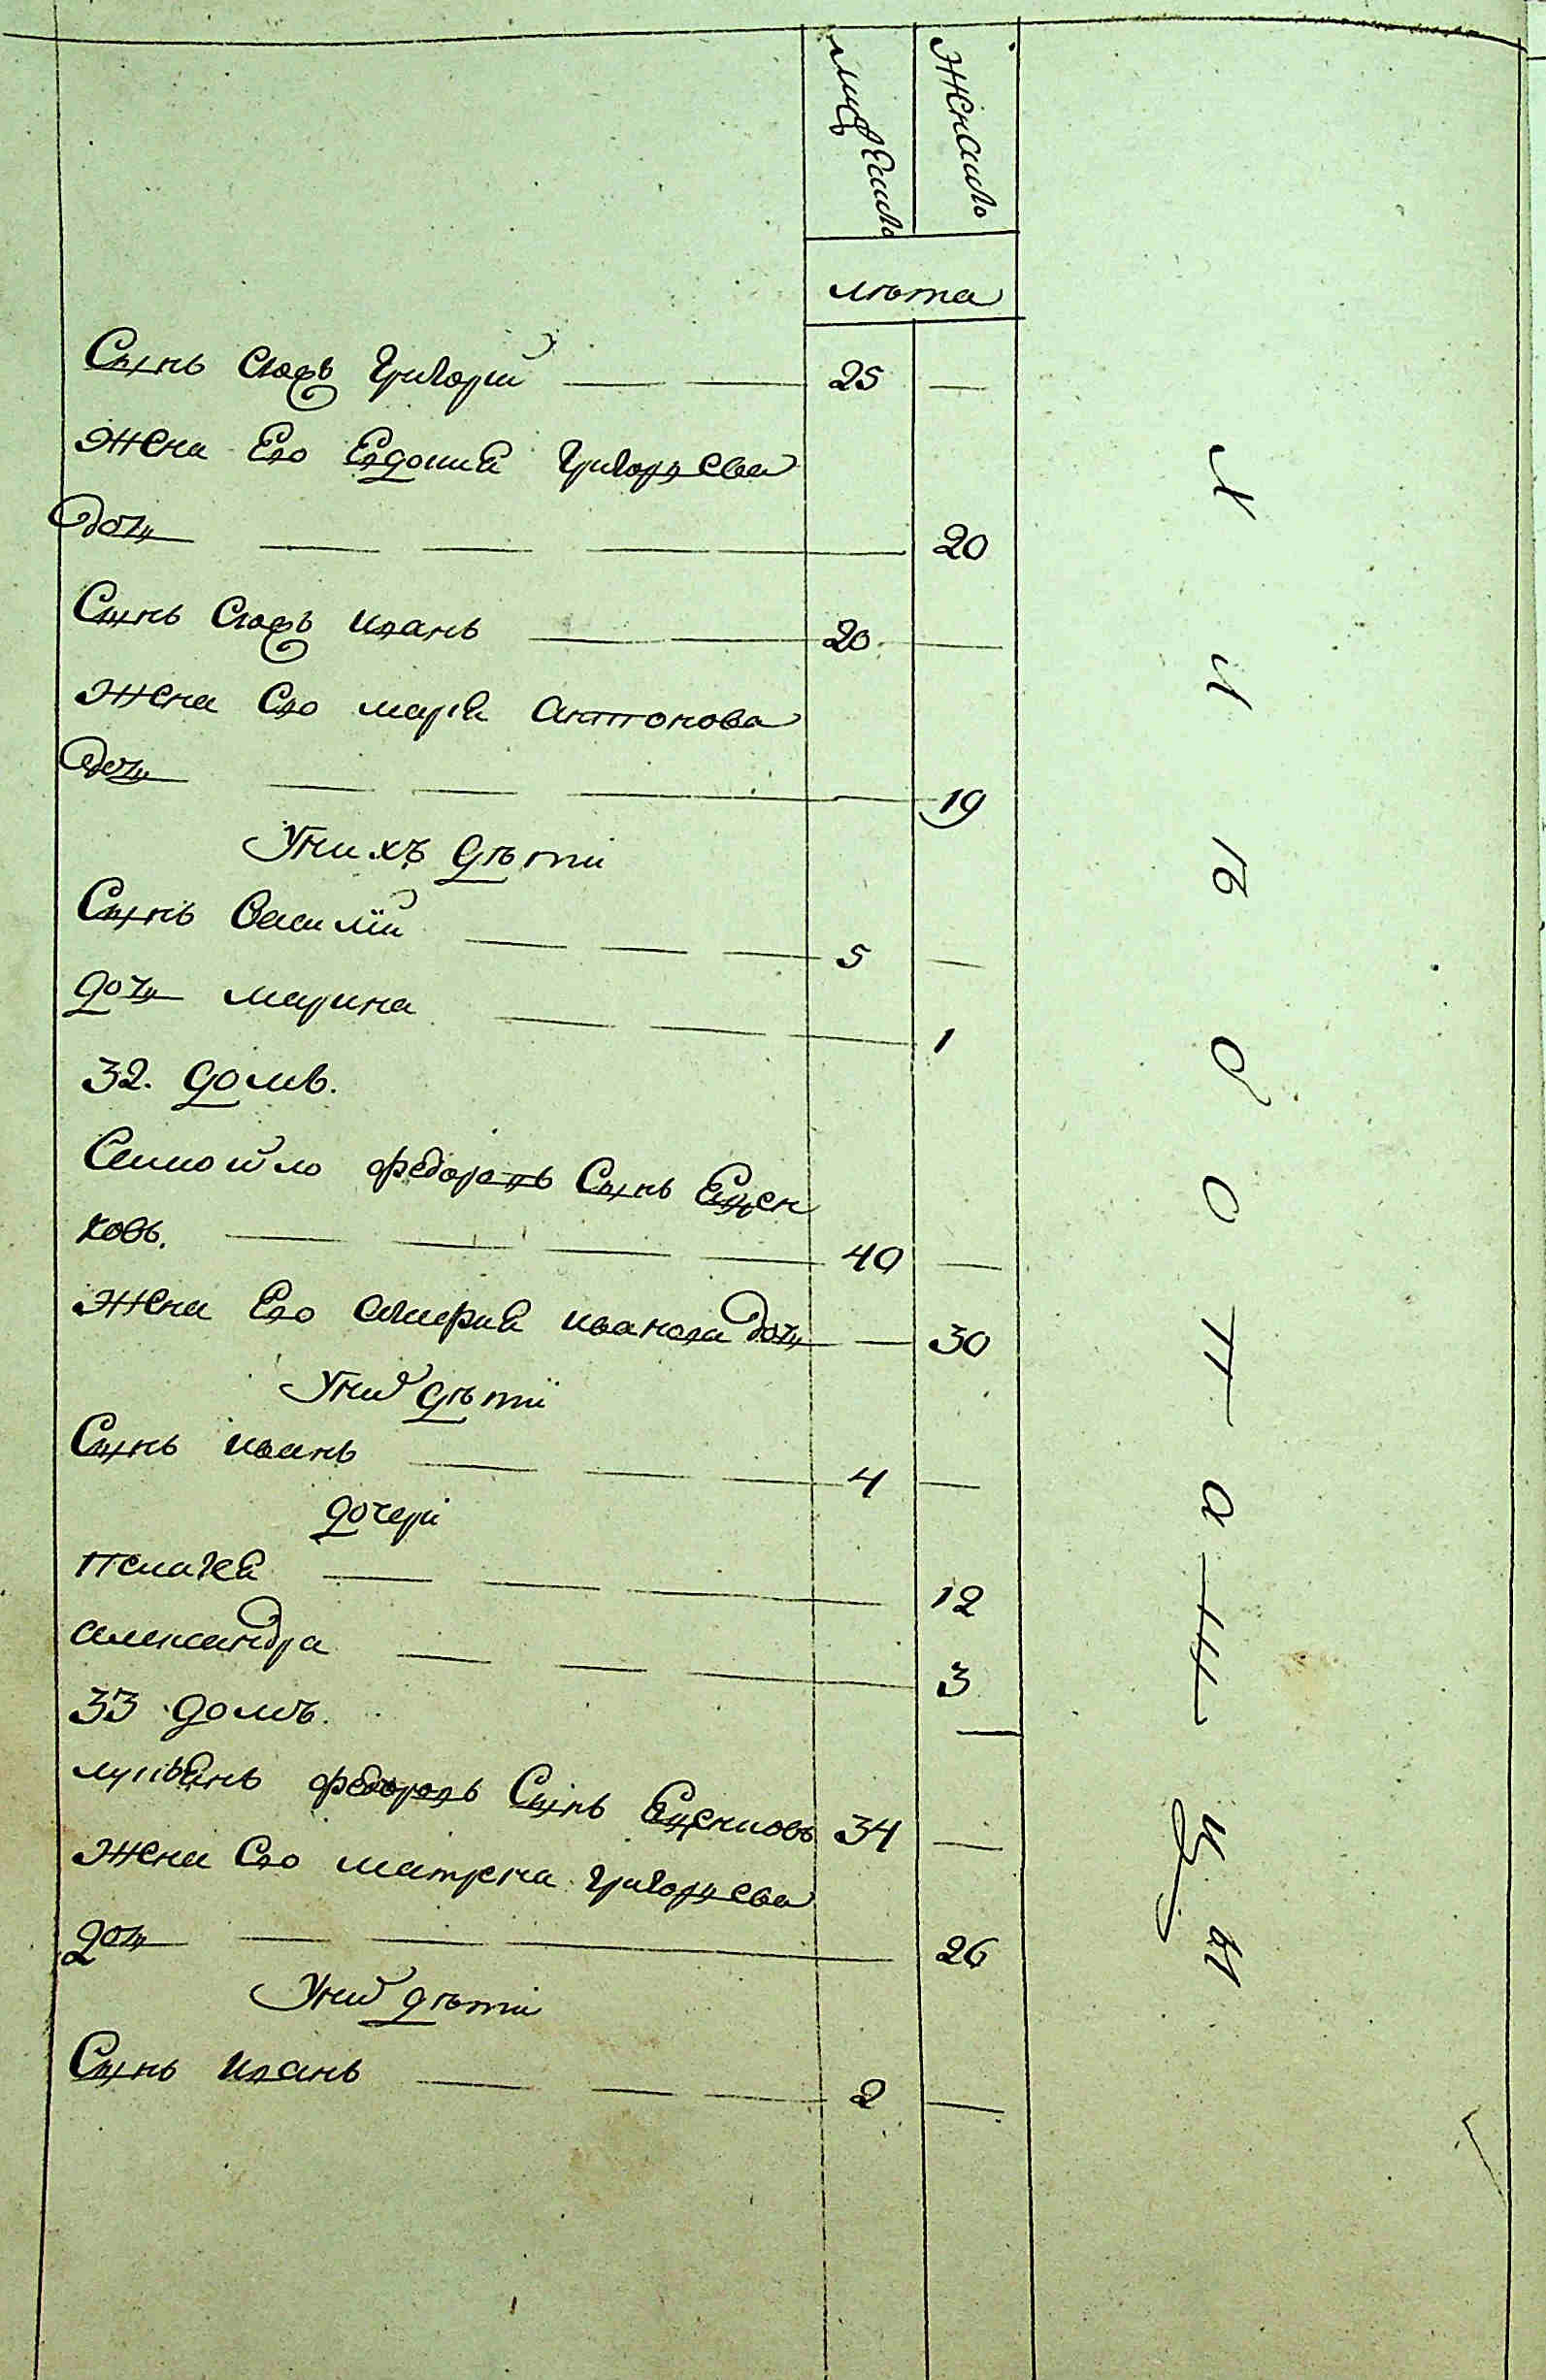 мужеска женска
лѣта
Сынъ Іоавъ Григорій 25 —
жена Его Евдокия Григорьева
дочь 20
Сынъ Иванъ 20 —
жена Его мария антонова
дочь 19
У нихъ дѣти
Сынъ Василїй 5 —
дочь марина 1
32. домъ.
Самойло федоровъ Сынъ Ещен
ковъ. 40 —
жена Его иванова дочь — 30
У них дѣтї
Сынъ иванъ 4 —
дочери
пелагея 12
александра 3
33 домъ.
лукьянъ федоровъ Сынъ Ещенковъ 34 —
жена Его матрена григорьева
дочь 26
У них дѣти
Сынъ иванъ 2 —